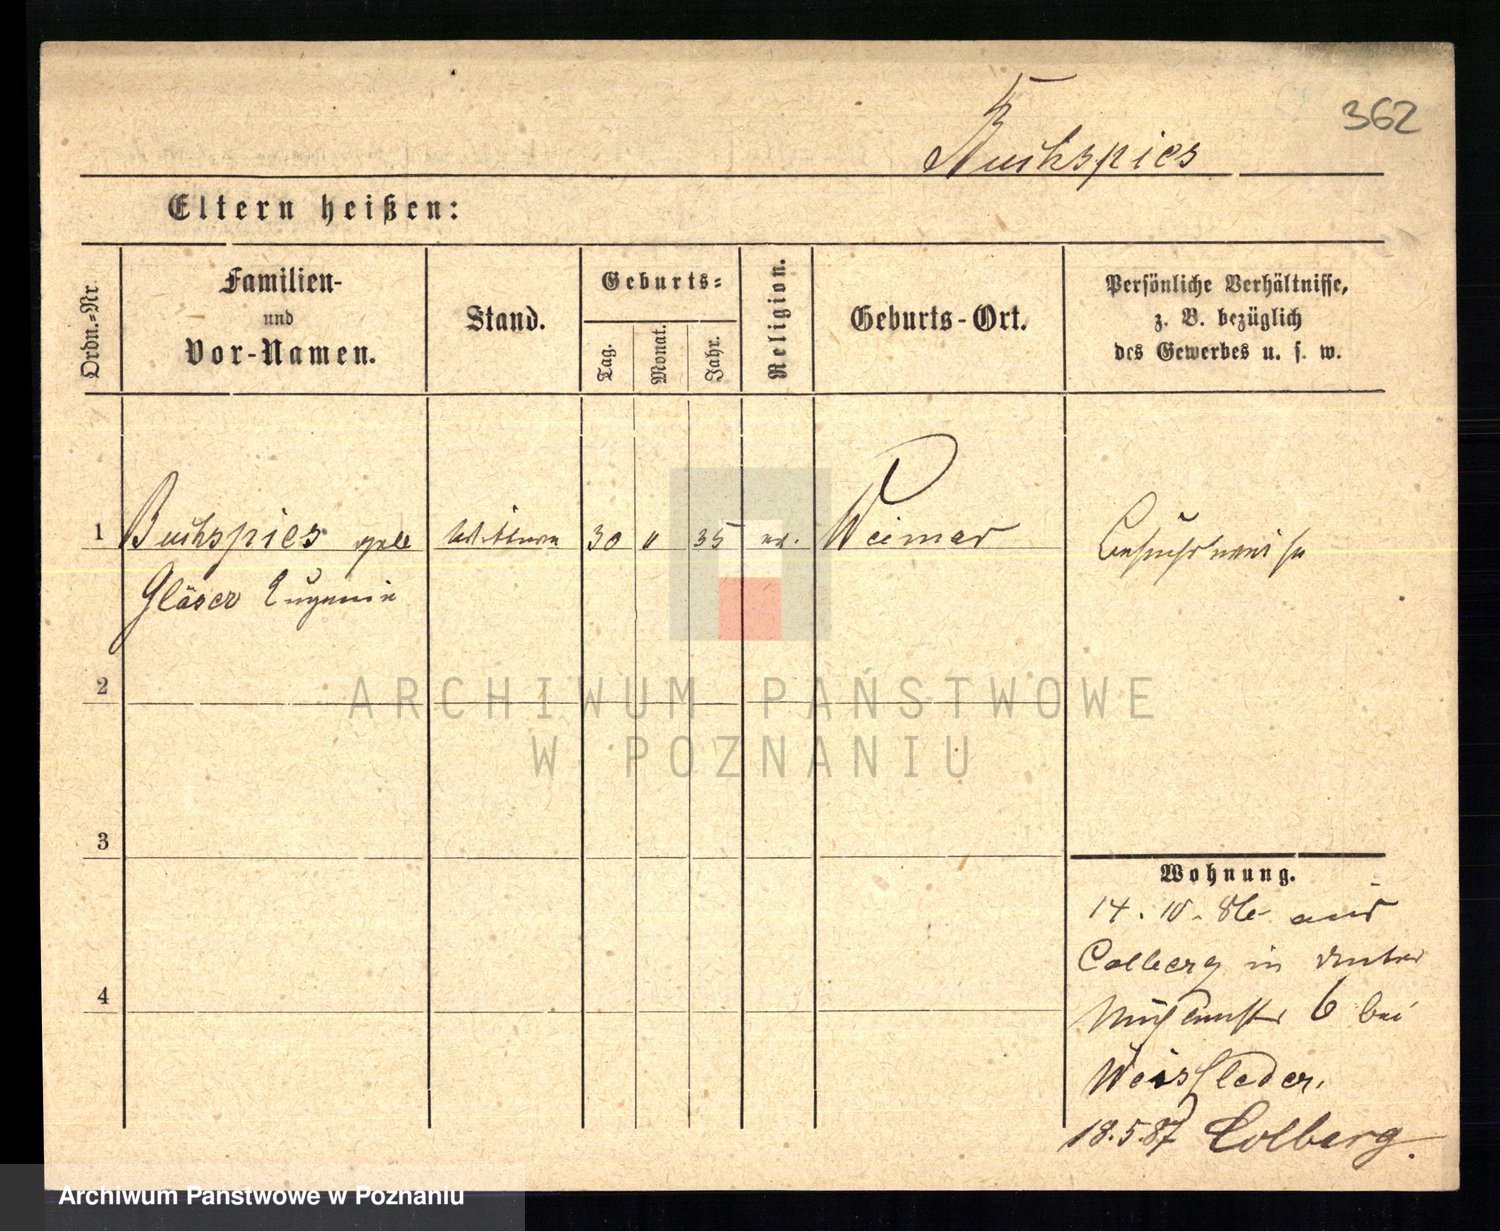 362
Buchspies
Eltern heißen:
Ordn.-Nr.
Familien-
und
Vor-Namen.
Stand.
Geburts-
Tag.
Monat.
Jahr.
Religion.
Geburts-Ort.
Persönliche Verhältnisse,
z. B. bezüglich
des Gewerbes u. s. w.
1
Buchspies geb
Gläser Eugenie
Wittwe
30
35
ev.
Weimar
besuchsweise
2
3
4
Wohnung.
14. 10. 86 aus
Colberg in Unter
6 bei
Weissleder.
18.5.87 Colberg.
ARCHIWUM PAŃSTWOWE
W POZNANIU
Archiwum Państwowe w Poznaniu